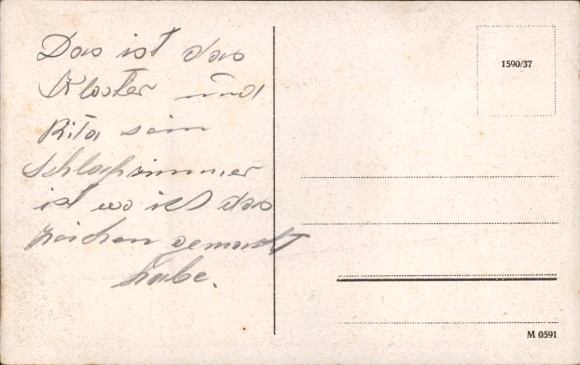 Das ist das
Kloster und
Rita sein
Schlafzimmer
ist wo ich das
zeichen gemacht
habe.
1590/37
M 0591